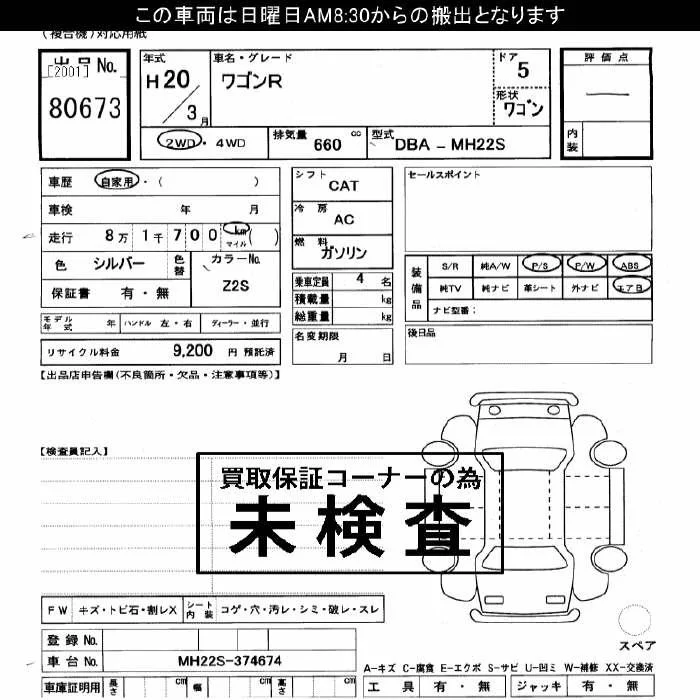 この車両は日曜日AM8:30からの搬出となります
(複合機)対応用紙
出品No.
[2001]
80673
年式
H20
/3月
車名・グレード
ワゴンR
ドア
5
形状
ワゴン
評価点
—
内装
2WD・4WD
排気量 660 cc
型式 DBA-MH22S
車歴 自家用・( )
車検 年 月
走行 8万1千700 km マイル ( )
色 シルバー
色替
カラーNo.
Z2S
保証書 有・無
シフト
CAT
冷房
AC
燃料
ガソリン
乗車定員 4 名
積載量 kg
総重量 kg
セールスポイント
装備品
S/R 純A/W P/S P/W ABS
純TV 純ナビ 革シート 外ナビ エアB
ナビ型番:
モデル年式 年 ハンドル 左・右 ディーラー・並行
リサイクル料金 9,200 円 預託済
名変期限
月 日
後日品
【出品店申告欄(不良箇所・欠品・注意事項等)】
【検査員記入】
買取保証コーナーの為
未検査
FW キズ・トビ石・割レX シート内装 コゲ・穴・汚レ・シミ・破レ・スレ
スペア
登録No.
車台No. MH22S-374674
A-キズ C-腐食 E-エクボ S-サビ U-凹ミ W-補修 XX-交換済
車庫証明用 長さ cm 幅 cm 高さ cm
工具 有・無 ジャッキ 有・無